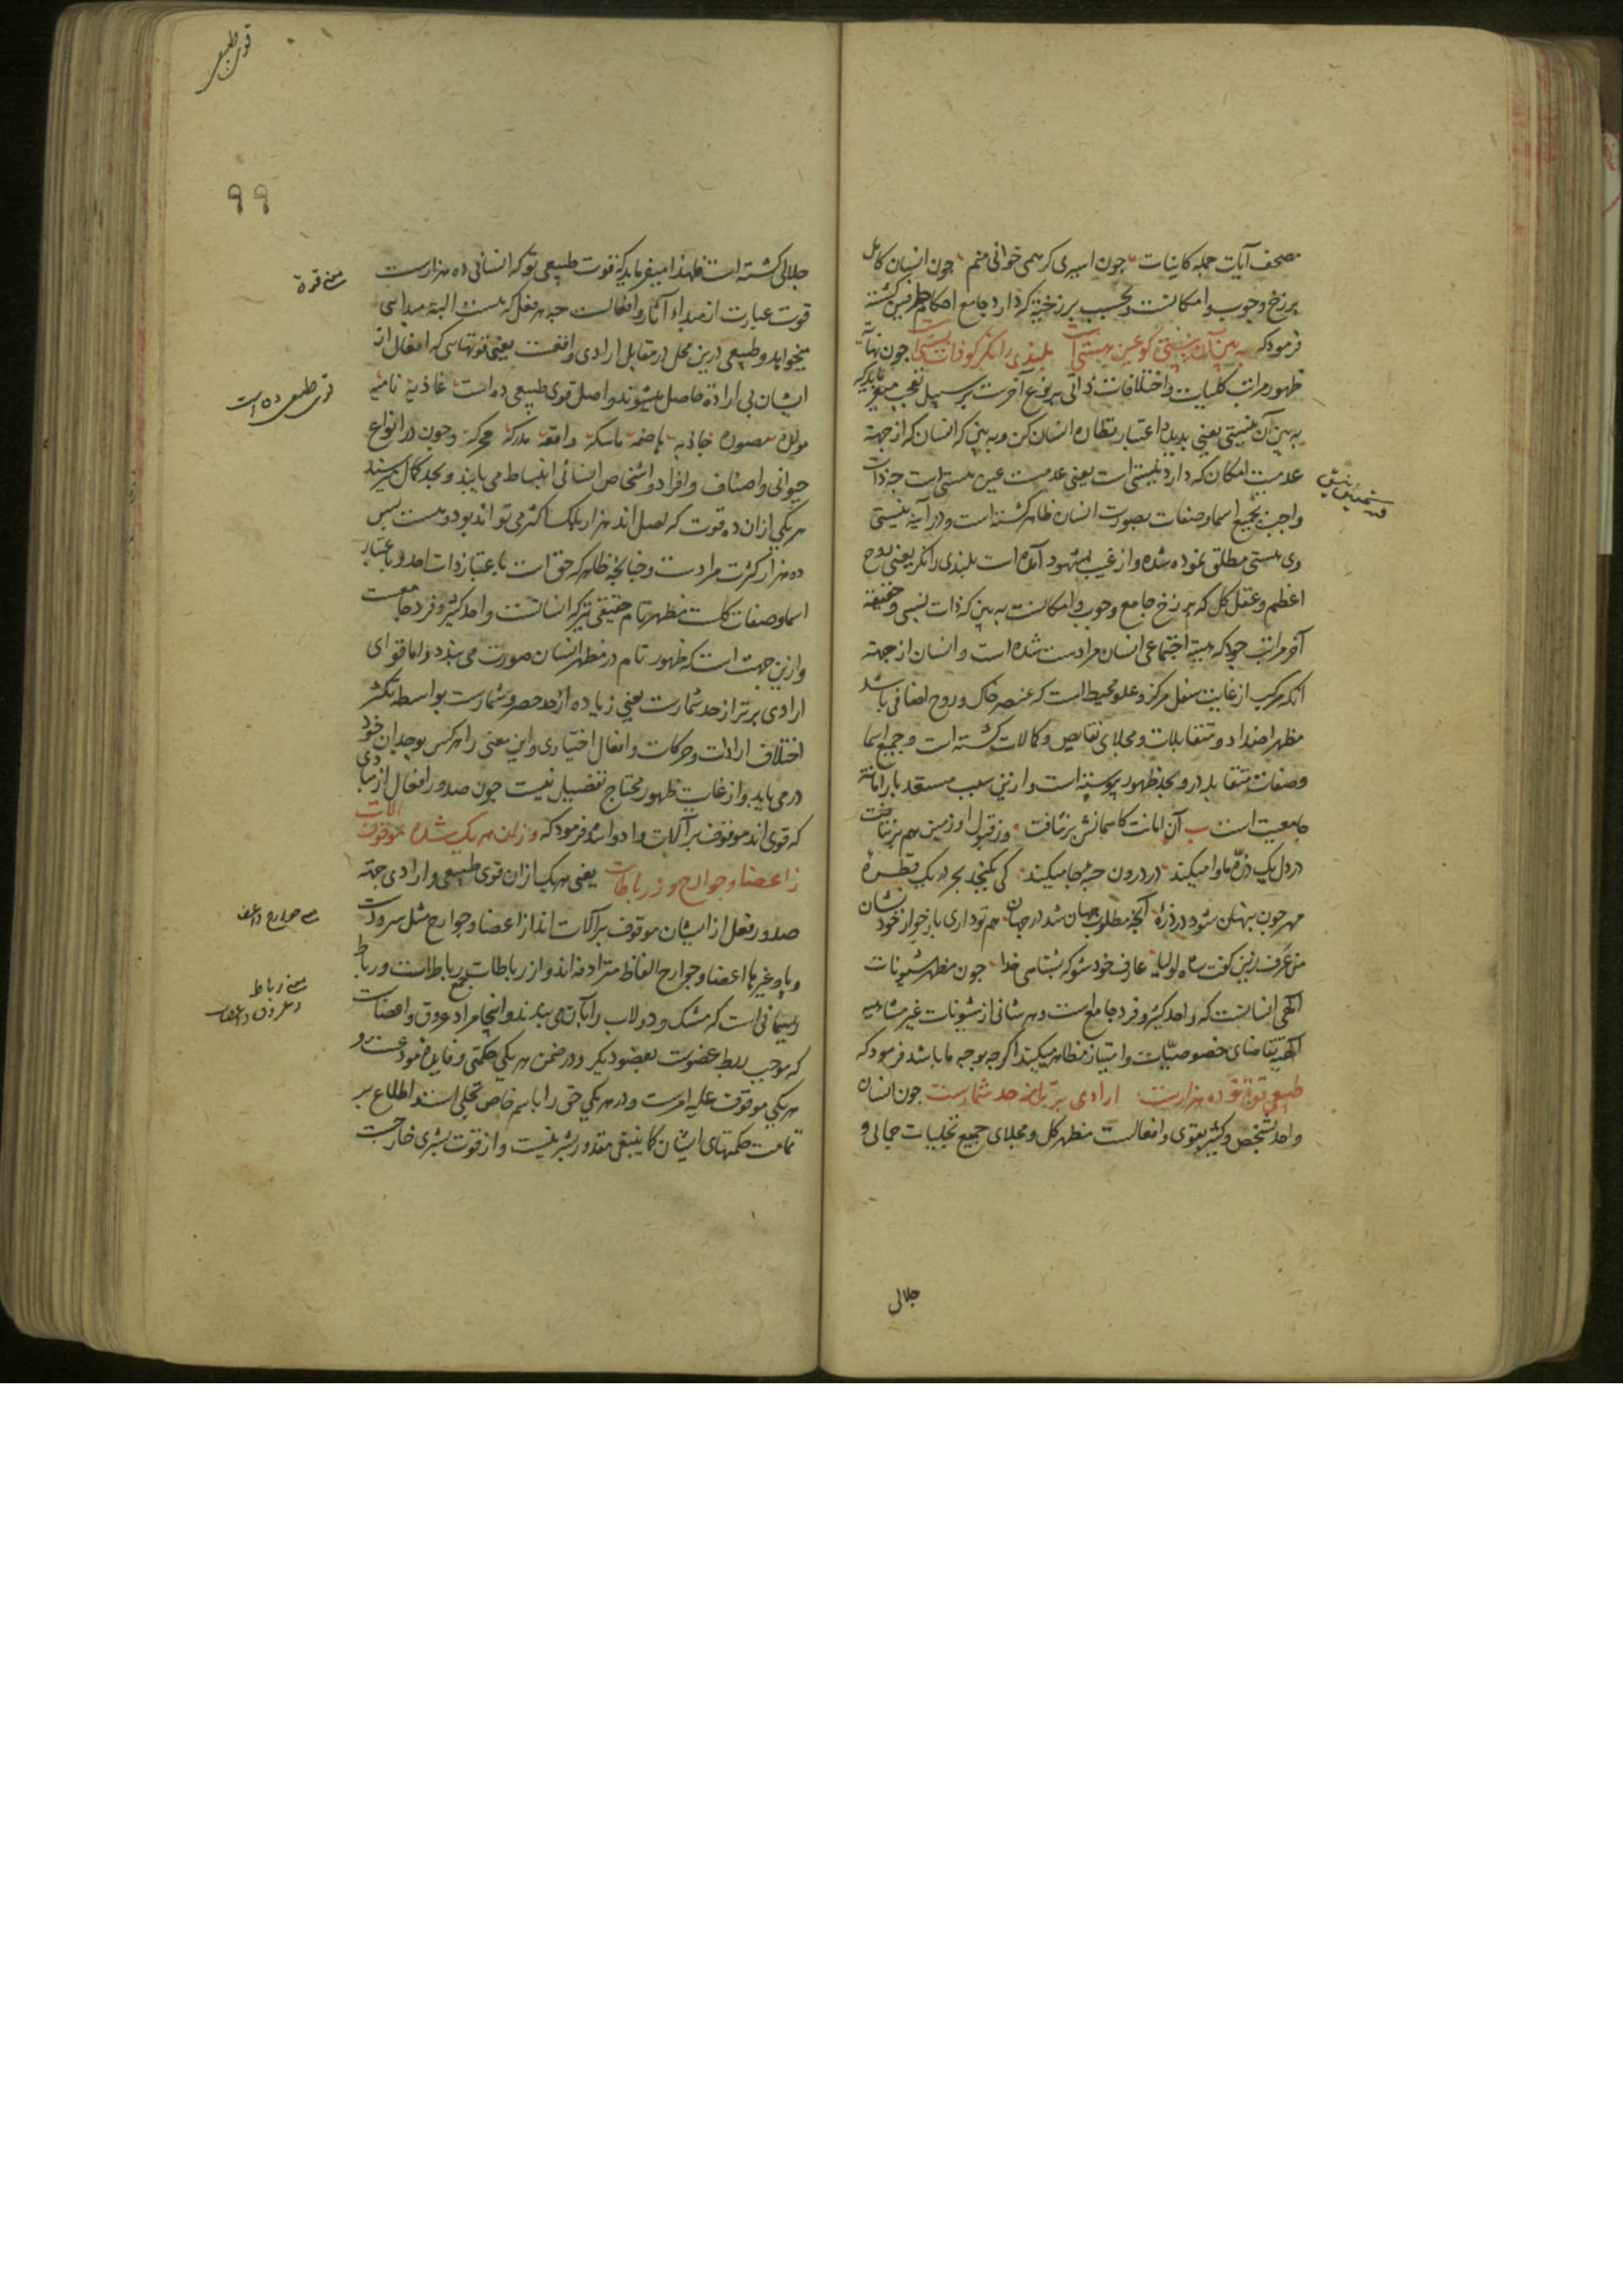 مصحف آیات جمله کاینات چون اسیری کر همی خوانی منم چون انسان کامل
برزخ وجوب و امکانست و بحسب برزخیة که دارد جامع احکام طرفین کشته
فرمود که ببین آن نیستی کو عین هستی است بلندی را نکر کو ذات پستی است چون نهایة
ظهور مراتب کلیات و اختلافات ذاتی بر نوع آخرست بر سبیل تعجب میفرماید که
به بین آن نیستی یعنی بدیده اعتبار نظاره انسان کن و به بین که انسان که از جهة
عدمیت امکان که دارد نیستی است یعنی عدمست عین هستی است چه ذات
واجب بجمیع اسما و صفات بصورت انسان ظاهر کشته است و در آینه نیستی
وی هستی مطلق نموده شده و از غیب بشهود آمده است بلندی را نکر یعنی روح
اعظم و عقل کل که برزخ جامع وجوب و امکانست به بین که ذات پستی و حقیقة
آخر مراتب وجود که هیئة اجتماعی انسان مرادست شده است و انسان از جهة
آنکه مرکب از غایت سفل مرکز و علو محیط است که عنصر خاک و روح اضافی باشد
مظهر اضداد و متقابلات و مجلای نقایص و کمالات کشته است و جمیع اسما
و صفات متقابله درو بحد ظهور پیوسته است و ازین سبب مستعد بار امانة
جامعیت است آن امانت کاسمانش برنتافت وز قبول او زمین هم برنتافت
در دل یک ذره ماوا میکند در درون حبه جا میکند کی بکنجد بحر در یک قطره
مهر چون پنهان شود در ذره آنچه مطلوب جهان شد در جهان هم تو داری باز جو از خود نشان
من عرف زین کفت شاه اولیا عارف خود شو که بشناسی خدا چون مظهر شیونات
الهی انسانست که واحد کثیر و فرد جامع است و هر شانی از شیونات غیر متناهیه
الهیه تقاضای خصوصیات و امتیاز مظاهر میکند اکر چه بوجه ما باشد فرمود که
طبیعی قوت تو ده هزارست ارادی برتر از حد شمارست چون انسان
واحد بشخص و کثیر بقوی و افعالست مظهر کل و مجلای جمیع تجلیات جمالی و
جلالی
قوی طبیعی
۹۹
جلالی کشته است فلهذا میفرماید که قوت طبیعی تو که انسانی ده هزارست
قوت عبارت از مبداء آثار و افعالست چه هر فعل که هست البته مبدائی
میخواهد و طبیعی درین محل در مقابل ارادی واقعست یعنی قوتهائی که افعال از
ایشان بی اراده حاصل میشوند و اصل قوی طبیعی ده است غاذیه نامیه
مولده مصوره جاذبه هاضمه ماسکه دافعه مدرکه محرکه و چون در انواع
حیوانی و اصناف و افراد و اشخاص انسانی انبساط می یابند و بحد کمال میرسند
هر یکی ازان ده قوت که اصل اند هزار بلک اکثر می تواند بود و هست پس
ده هزار کثرت مرادست و چنانچه ظاهر که حق است باعتبار ذات احد و باعتبار
اسما و صفات کلست مظهر تام حقیقی نیز که انسانست واحد کثیر و فرد جامعست
و ازین جهت است که ظهور تام در مظهر انسان صورت می بندد و اما قوای
ارادی برتر از حد شمارست یعنی زیاده از حد حصر و شمارست بواسطه تکثر
اختلاف ارادات و حرکات و افعال اختیاری و این معنی را هر کس بوجدان خود
در می یابد و از غایت ظهور محتاج تفصیل نیست چون صدور افعال از مبادی
که قوی اند موقوف بر آلات و ادواتند فرمود که وزان هر یک شده موقوف آلات
ز اعضا و جوارح وز رباطات یعنی هر یک ازان قوی طبیعی و ارادی جهة
صدور فعل از ایشان موقوف بر آلات اند از اعضا و جوارح مثل سر و دست
و پا و غیرها اعضا و جوارح الفاظ مترادفه اند و از رباطات جمع رباطست و رباط
ریسمانی است که مشک و دولاب را بآن می بندند و اینجا مراد عروق و اعصابست
که موجب ربط عضوست بعضو دیکر و در ضمن هر یکی حکمتی و فایده نمود عست و
هر یکی موقوف علیه امریست و در هر یکی حق را باسم خاص تجلی است اطلاع بر
تمامت حکمتهای ایشان کما ینبغی مقدور بشر نیست و از قوت بشری خارجست
معنی قوة
قوی طبیعی ده است
معنی جوارح و اعضا
معنی رباط
و عروق و اعصاب